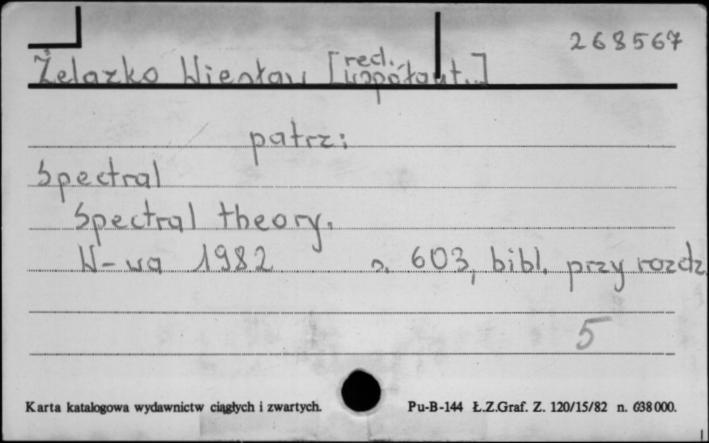 268567
Żelazko Wiesław [red., współaut.]
patrz:
Spectral
Spectral theory.
W-wa 1982 s. 603, bibl. przy rozdz.
5
Karta katalogowa wydawnictw ciągłych i zwartych. Pu-B-144 Ł.Z.Graf. Z. 120/15/82 n. 638 000.